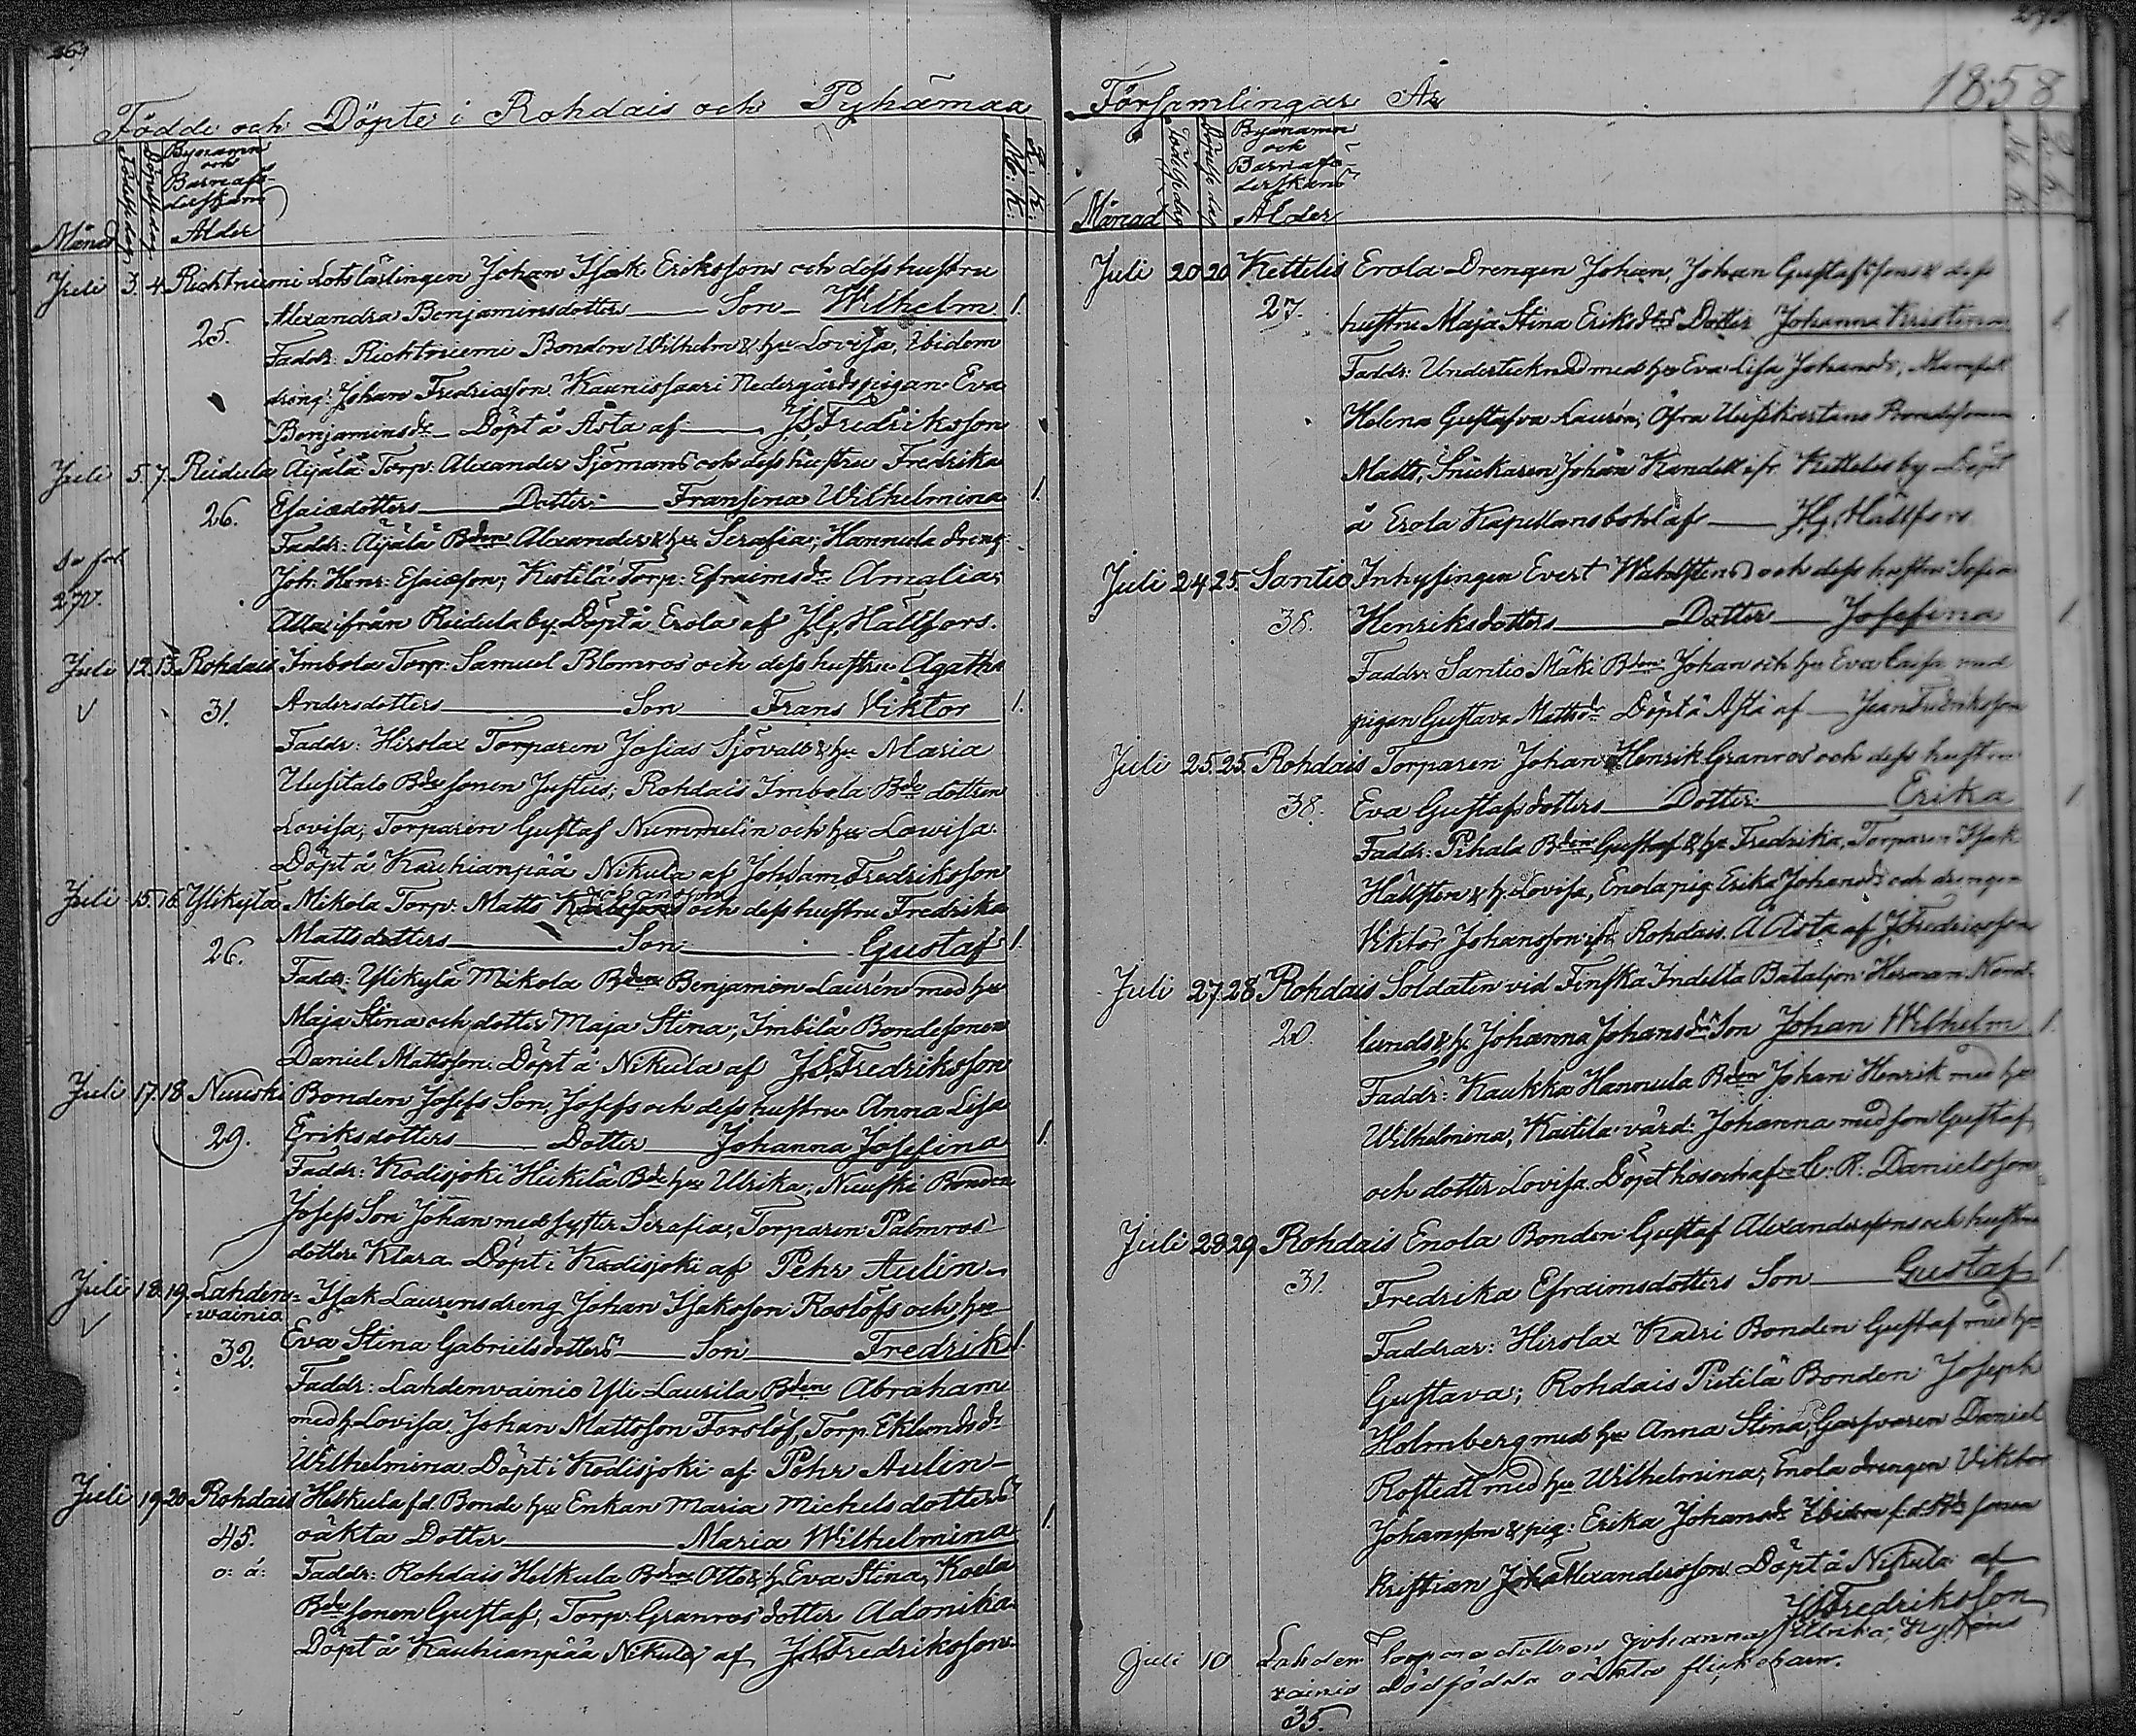 269
Födde och Döpte i Rohdais och Pyhämaa
Månad
Födelsedag
Döpelsedag
Bynamn
och
Barnafö-
derskans
Ålder
M. K.
Q. K.
Juli 3. 4. Richtniemi Lotslärlingen Johan Isak Erikssons och dess hustru
25. Alexandra Benjaminsdotters Son Wilhelm 1.
Faddr. Richtniemi Bonden Wilhelm & hu Lovisa, Ibidem
dreng: Johan Fredricsson. Kaunissaari Nedergårds pigan Eva
Benjaminsdr Döpt å Asta af JFredriksson
Juli 5. 7. Reidula Äijälä Torp. Alexander Sjömans och dess hustru Fredrika
26. Esaiedotters Dotter Fransina Wilhelmina 1.
Faddr: Äijälä Bden Alexander & hu Serafia; Hannula dreng
Joh: Henr: Esaiesson; Kistilä Torp: Efraimsdr Amalia;
Alla ifrån Reidula by. Döpt å Erola af Hj. Hällfors.
Se fol.
270.
Juli 12. 13. Rohdais Imbola Torp: Samuel Blomros och dess hustru Agatha
31. Andersdotters Son Frans Viktor 1.
Faddr: Hirslax Torparen Josias Sjövall & hu Maria
Uusitalo Bde sonen Justus; Rohdais Imbola Bde dottren
Lovisa; Torparen Gustaf Nummelin och hu Lowisa.
Döpt å Kauhianpää Nikula af Joh. Fredriksson
Juli 15. 16. Ylikylä Mikola Torp: Matts och dess hustru Fredrika
26. Mattsdotters Son Gustaf 1.
Faddr: Ylikylä Mikola Bden Benjamin Laurén med hu
Maja Stina och dotter Maja Stina; Imbilä Bondesonen
Daniel Mattsson. Döpt å Nikula af JFredriksson
Juli 17. 18. Nuuski Bonden Josefs Son, Josefs och dess hustru Anna Lisa
29. Eriksdotters Dotter Johanna Josefina 1.
Faddr: Kodisjoki Heikilä Bde hu Ulrika; Nuuski Bonden
Josefs Son Johan med syster Serafia; Torparen Palmros
dotter Klara. Döpt i Kodisjoki af Pehr Aulin
Juli 18. 19. Lahden-
wainio Isak Laurens dreng Johan Isaksson Roslöfs och hu
32. Eva Stina Gabrielsdotters Son Fredrik 1.
Faddr: Lahdenvainio Yli-Laurila Bden Abraham
med h. Lovisa. Johan Mattsson Forslöf, Torp. Eklunds dr
Wilhelmina. Döpt i Kodisjoki af Pehr Aulin
Juli 19. 20. Rohdais Helkula f.d. Bonde hu Enkan Maria Michelsdotters
45. oäkta Dotter Maria Wilhelmina 1.
o: ä: Faddr: Rohdais Helkula Bden Otto & h. Eva Stina, Koela
Bde sonen Gustaf, Torp: Granros dotter Adonika.
Döpt å Kauhianpää Nikula af JFredriksson
Församlingar År 1858
Månad
Födelsedag
Döpelsedag
Bynamn
och
Barnafö-
derskans
Ålder
M. K.
Q. K.
Juli 20 20 Kettelis Erola Drengen Johan, Johan Gustafssons & dess
27. hustru Maja Stina Eriksdrs Dotter Johanna Kristina 1.
Faddr: Undertecknad med hu Eva Lisa Johansdr, Mamsell
Helena Gustafva Laurén; Öfra Bondesonen
Matts, Snickaren Johan Kandell ifr. Kettelis by. Döpt
å Erola Kapellansbohl af Hj. Hällfors
Juli 24 25. Santio Inhysingen Evert Wahlstens och dess hustru Sofia
38. Henriksdotters Dotter Josefina 1.
Faddr: Santio Mäki Bden Johan och hu Eva Caisa med
pigan Gustava Mattsdr Döpt å Asta af Jean Fredriksson
Juli 25. 25. Rohdais Torparen Johan Henrik Granros och dess hustru
38. Eva Gustafsdotters Dotter Erika 1
Faddr: Pihala Bden Gustaf & hu Fredrika, Torparen Isak
Hällsten & h. Lovisa, Enola pig. Erika Johansdr och drengen
Viktor Johansson ifr. Rohdais. Å Asta af JFredricsson
Juli 27. 28. Rohdais Soldaten vid Finska Indelta Bataljon Herman Nord-
20. lunds & h. Johanna Johansdrs Son Johan Wilhelm 1.
Faddr: Kaukka Hannula Bden Johan Henrik med hu
Wilhelmina; Kaitila värd: Johanna med son Gustaf
och dotter Lovisa. Döpt hos och af C. R. Danielsson
Juli 28 29. Rohdais Enola Bonden Gustaf Alexanderssons och hustru
31. Fredrika Efraimsdotters Son Gustaf 1.
Faddrar: Hirslax Kaeri Bonden Gustaf med hu
Gustava; Rohdais Pietilä Bonden Joseph
Holmberg med hu Anna Stina, Garfvaren Daniel
Rostedt med hu Wilhelmina; Enola drengen Viktor
Johansson & pig: Erika Johansdr Ibidem f.d. Bde sonen
Kristian Alexandersson. Döpt å Nikula af
JFredriksson
Juli 10. Lahden
vainio Torpare dottren Johanna Ulrika
35. dödfödda oäkta flickebarn.